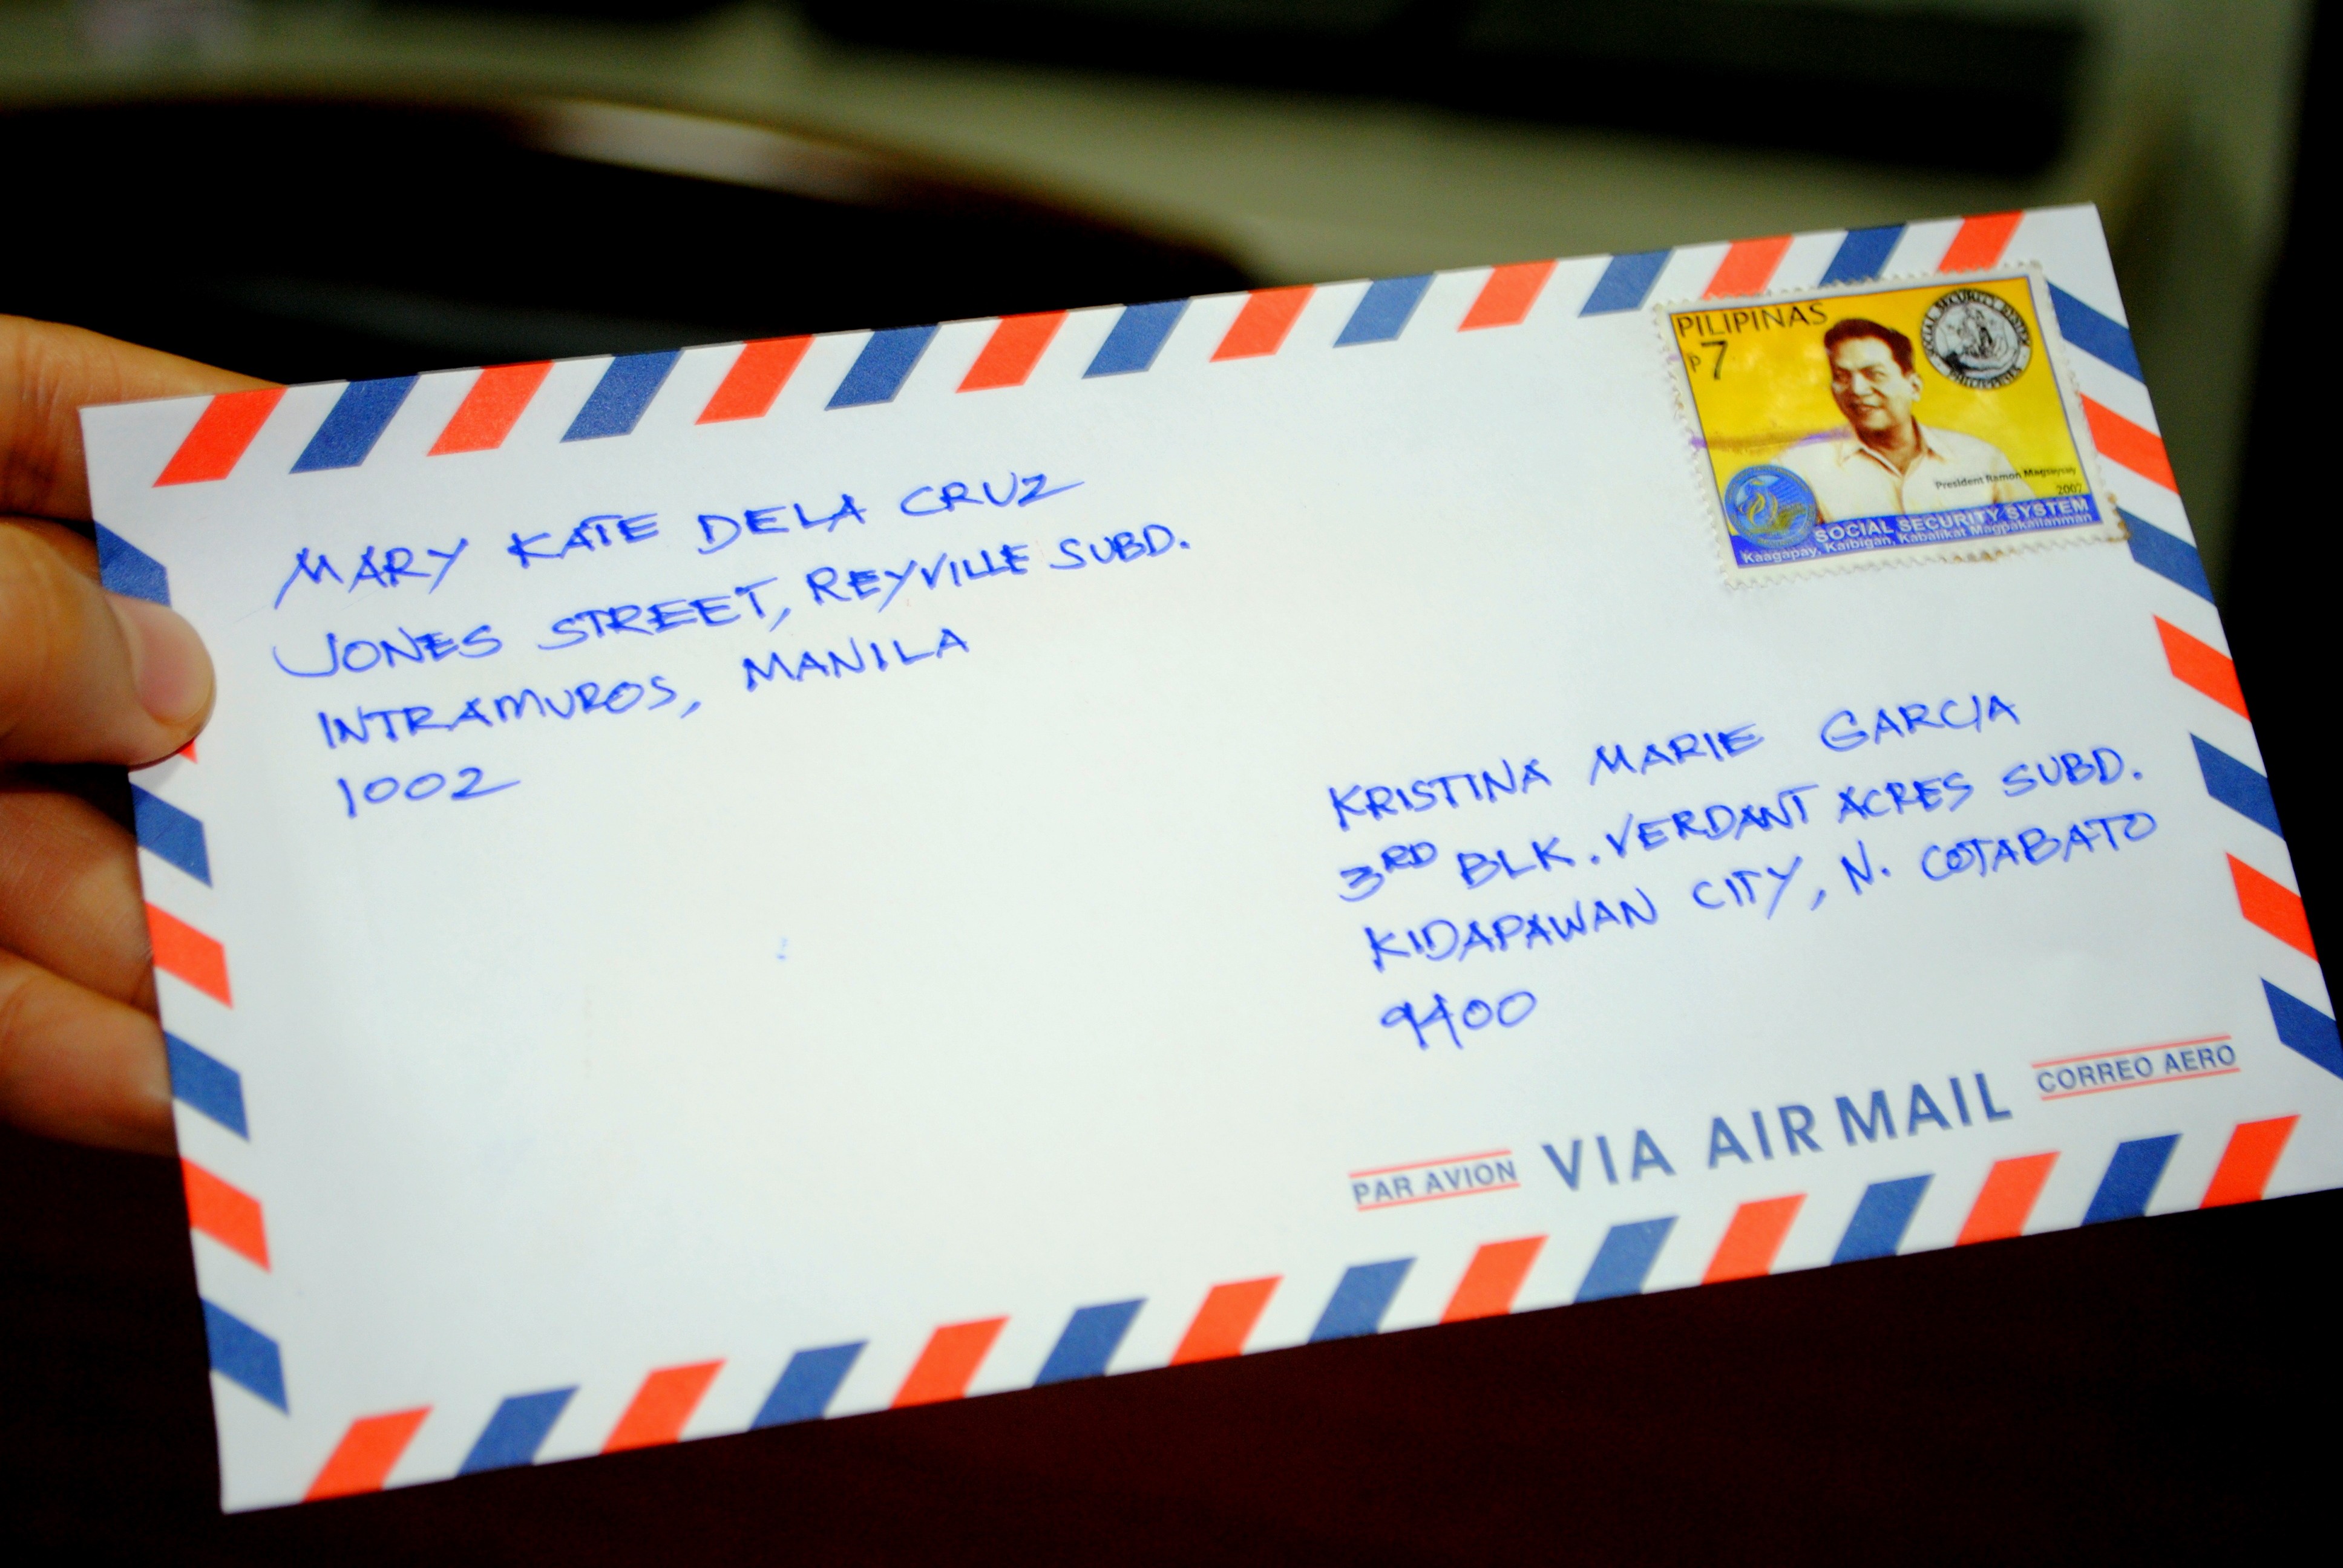 MARY KATE DELA CRUZ
JONES STREET, REYVILLE SUBD.
INTRAMUROS, MANILA
1002
PILIPINAS
P7
SOCIAL SECURITY SYSTEM
PHILIPPINES
President Ramon Magsaysay
2007
SOCIAL SECURITY SYSTEM
Kaagapay, Kaibigan, Kabalikat Magpakailanman
KRISTINA MARIE GARCIA
3RD BLK. VERDANT ACRES SUBD.
KIDAPAWAN CITY, N. COTABATO
9400
PAR AVION VIA AIR MAIL CORREO AERO